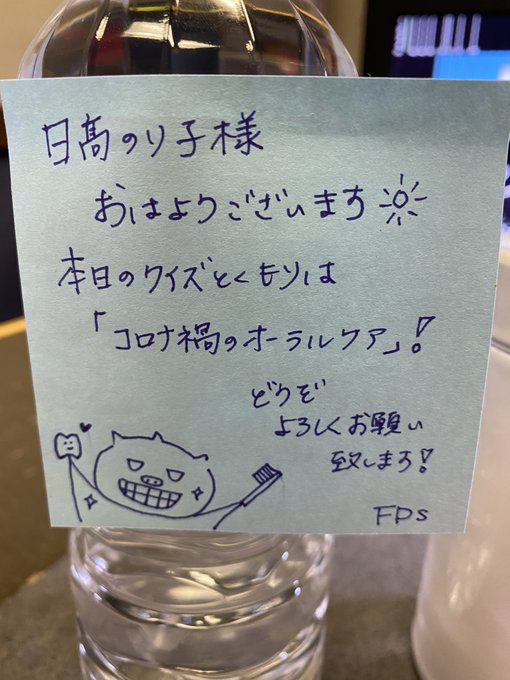 日髙のり子様
おはようございます
本日のクイズとくもりは
「コロナ禍のオーラルケア」!
どうぞ
よろしくお願い
致します!
FDS